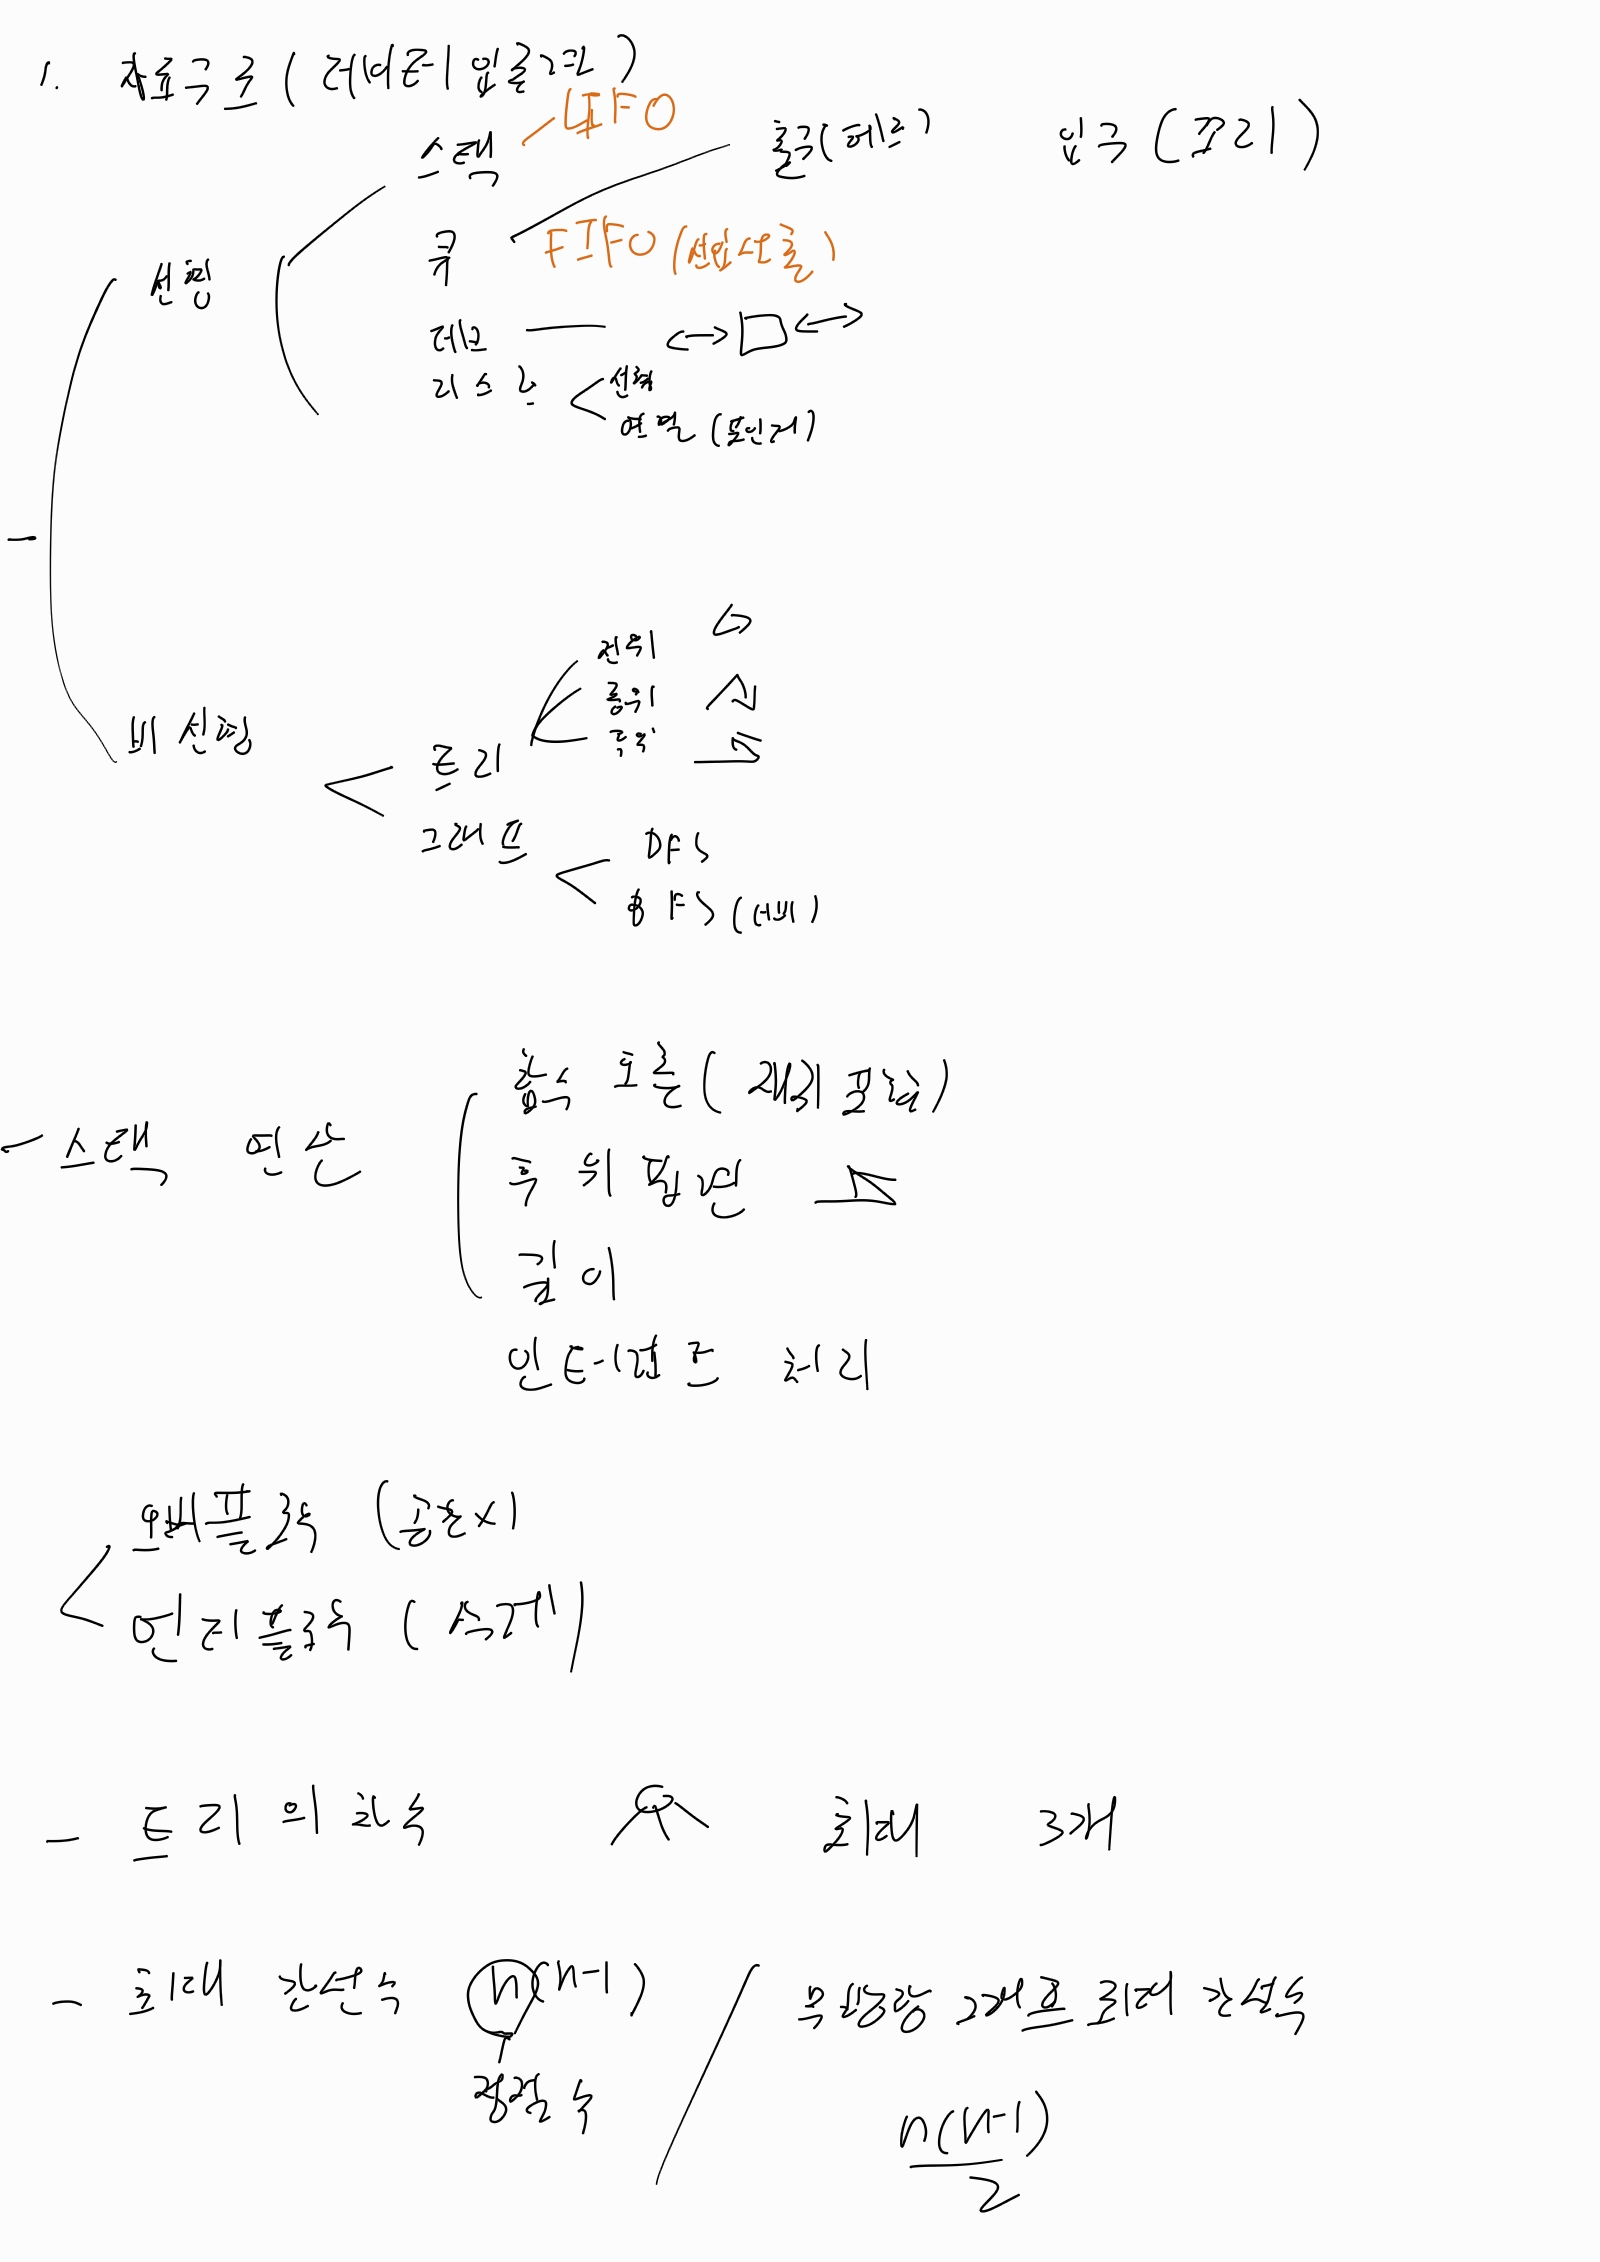 1. 자료구조 (데이터 입출관)
스택 LIFO
출구(헤드) 입구 (꼬리)
큐 FIFO (선입선출)
선형
데크
리스트 선형
연결 (포인터)
전위
중위
후위
비선형
트리
그래프
DFS
BFS (너비)
함수 호출 (재귀 포함)
- 스택 연산
후위 표현
깊이
인터럽트 처리
오버플로우 (공간X)
언더플로우 (삭제)
- 트리의 차수 최대 3개
- 최대 간선 수 n(n-1) / 무방향 그래프 최대 간선수
정점 수
n(n-1)
2